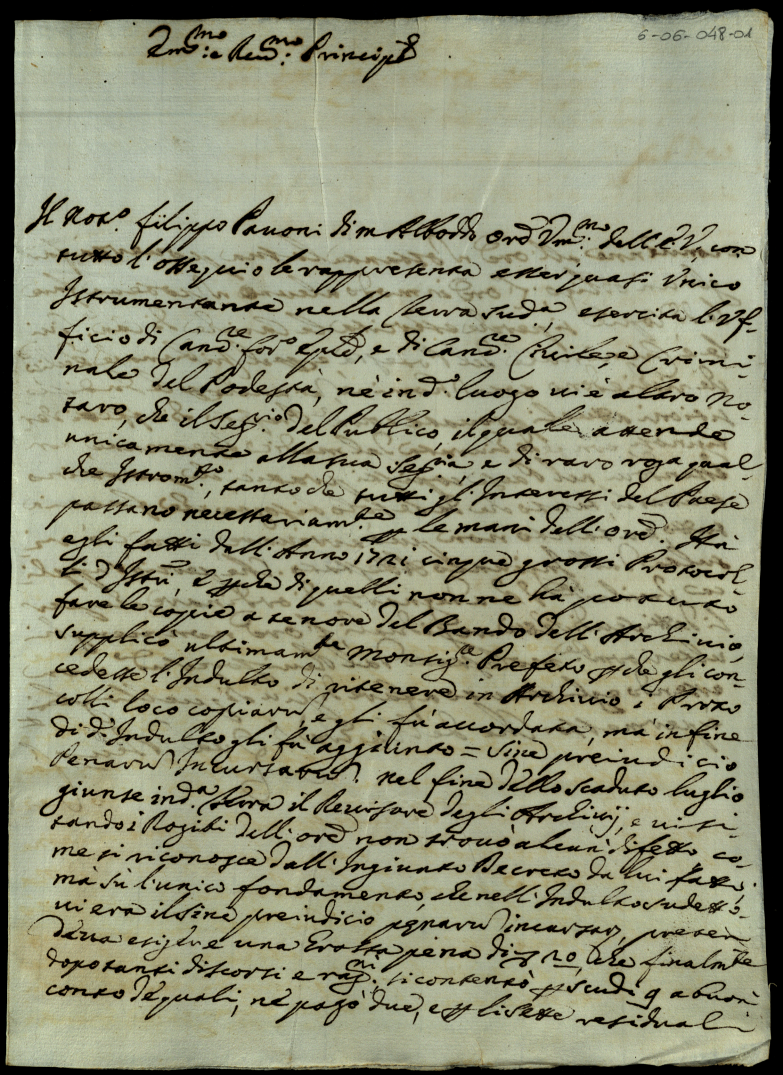 6-06-048-01
Emo: e Remo: Principe
Il Noto. Filippo Pauoni di m Alboddo Ore Vmo: dell'E.V., con
tutto l'ossequio le rappresenta esser quasi Vnico
Istrumentante nella Terra suda. esercita l'Vf-
ficio di Canre. foro Eple, e di Cancre. Ciuile, e Crimi-
nale del Podestà, nè in do. luogo ui è altro No-
taro, che il Segrio. del Publico, il quale attende
unicamente alla sua Segria, e di raro roga qual-
che Istromto., tanto che tutti gl'Interessi del Paese
passano necessariamte. p le mani dell'Ore. Hà
egli fatti dall'Anno 1721 cinque grossi Protocol-
li d'Istri, e pche di quelli non ne hà potuto
fare le copie a tenore del Bando dell'Archiuio,
supplicò ultimamte Monsigre. Prefeto pche gli con-
cedesse l'Indulto di ritenere in Archiuio i Proto
colli loco copiaru, e gli fu accordata, mà in fine
di do. Indulto gli fù aggiunto = sine preiudicio
Penaru Incursaru. Nel fine dello scaduto luglio
giunse in da. Terra il Reuisore degli Archiuij, e uisi-
tando i Rogiti dell'Ore non trouò alcun difetto co-
me si riconosce dall'Ingiunto Decreto da lui fatto;
mà sù l'unico fondamento, che nell'Indulto sudetto
ui era il sine preiudicio penaru incursar, preten
deua esigere una Grossa pena di 20, che finalmte
dopo tanti discorsi e ragni. si contentò p scudi 9 a buon
conto de quali, nè pagò due, e p li sette residuali